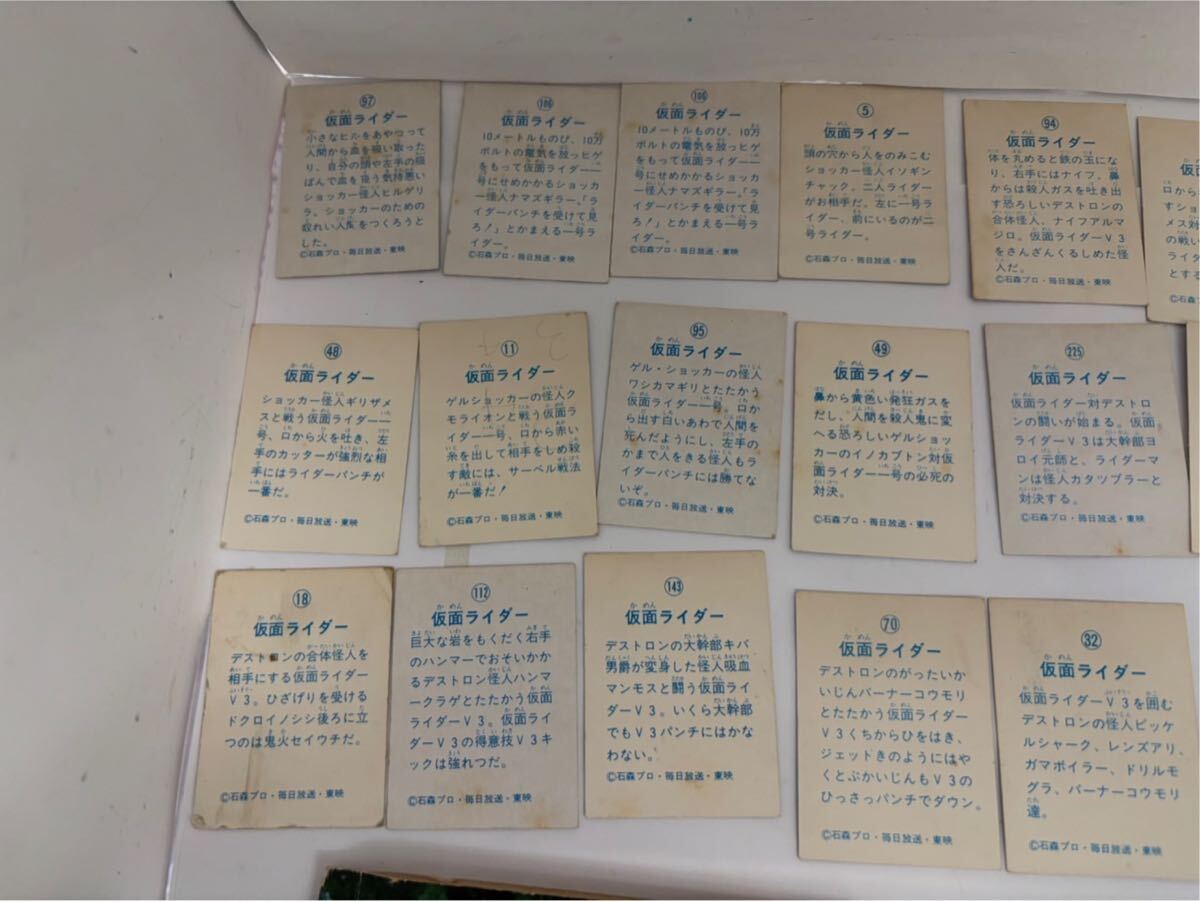 97
仮面ライダー
小さなヒルをあやつって
人間から血を吸い取った
り、自分の頭や左手の吸
ばんで血を吸う気持悪い
ショッカー怪人ヒルゲリ
ラ。ショッカーのための
奴れい人間をつくろうと
した。
©石森プロ・毎日放送・東映
106
仮面ライダー
10メートルものび、10万
ボルトの電気を放っヒゲ
をもって仮面ライダー一
号にせめかかるショッカ
ー怪人ナマズギラー。「ラ
イダーパンチを受けて見
ろ!」とかまえる一号ラ
イダー。
©石森プロ・毎日放送・東映
106
仮面ライダー
10メートルものび、10万
ボルトの電気を放っヒゲ
をもって仮面ライダー一
号にせめかかるショッカ
ー怪人ナマズギラー。「ラ
イダーパンチを受けて見
ろ!」とかまえる一号ラ
イダー。
©石森プロ・毎日放送・東映
5
仮面ライダー
頭の穴から人をのみこむ
ショッカー怪人イソギン
チャック。二人ライダー
がお相手だ。左に一号ラ
イダー、前にいるのが二
号ライダー。
©石森プロ・毎日放送・東映
94
仮面ライダー
体を丸めると鉄の玉にな
り、右手にはナイフ、鼻
からは殺人ガスを吐き出
す恐ろしいデストロンの
合体怪人、ナイフアルマ
ジロ。仮面ライダーV3
をさんざんくるしめた怪
人だ。
©石森プロ・毎日放送・東映
仮
口から
すショ
メス対
の戦い
ライダ
とする
©石森
48
仮面ライダー
ショッカー怪人ギリザメ
スと戦う仮面ライダー一
号、口から火を吐き、左
手のカッターが強烈な相
手にはライダーパンチが
一番だ。
©石森プロ・毎日放送・東映
11
仮面ライダー
ゲルショッカーの怪人ク
モライオンと戦う仮面ラ
イダー一号、口から赤い
糸を出して相手をしめ殺
す敵には、サーベル戦法
が一番だ!
©石森プロ・毎日放送・東映
95
仮面ライダー
ゲル・ショッカーの怪人
ワシカマギリとたたかう
仮面ライダー一号。口か
ら出す白いあわで人間を
死んだようにし、左手の
かまで人をきる怪人もラ
イダーパンチには勝てな
いぞ。
©石森プロ・毎日放送・東映
49
仮面ライダー
鼻から黄色い発狂ガスを
だし、人間を殺人鬼に変
へる恐ろしいゲルショッ
カーのイノカブトン対仮
面ライダー一号の必死の
対決。
©石森プロ・毎日放送・東映
225
仮面ライダー
仮面ライダー対デストロ
ンの闘いが始まる。仮面
ライダーV3は大幹部ヨ
ロイ元師と、ライダーマ
ンは怪人カタツブラーと
対決する。
©石森プロ・毎日放送・東映
18
仮面ライダー
デストロンの合体怪人を
相手にする仮面ライダー
V3。ひざげりを受ける
ドクロイノシシ後ろに立
つのは鬼火セイウチだ。
©石森プロ・毎日放送・東映
112
仮面ライダー
巨大な岩をもくだく右手
のハンマーでおそいかか
るデストロン怪人ハンマ
ークラゲとたたかう仮面
ライダーV3。仮面ライ
ダーV3の得意技V3キ
ックは強れつだ。
©石森プロ・毎日放送・東映
143
仮面ライダー
デストロンの大幹部キバ
男爵が変身した怪人吸血
マンモスと闘う仮面ライ
ダーV3。いくら大幹部
でもV3パンチにはかな
わない。
©石森プロ・毎日放送・東映
70
仮面ライダー
デストロンのがったいか
いじんバーナーコウモリ
とたたかう仮面ライダー
V3くちからひをはき、
ジェットきのようにはや
くとぶかいじんもV3の
ひっさっパンチでダウン。
©石森プロ・毎日放送・東映
32
仮面ライダー
仮面ライダーV3を囲む
デストロンの怪人ピッケ
ルシャーク、レンズアリ、
ガマボイラー、ドリルモ
グラ、バーナーコウモリ
達。
©石森プロ・毎日放送・東映